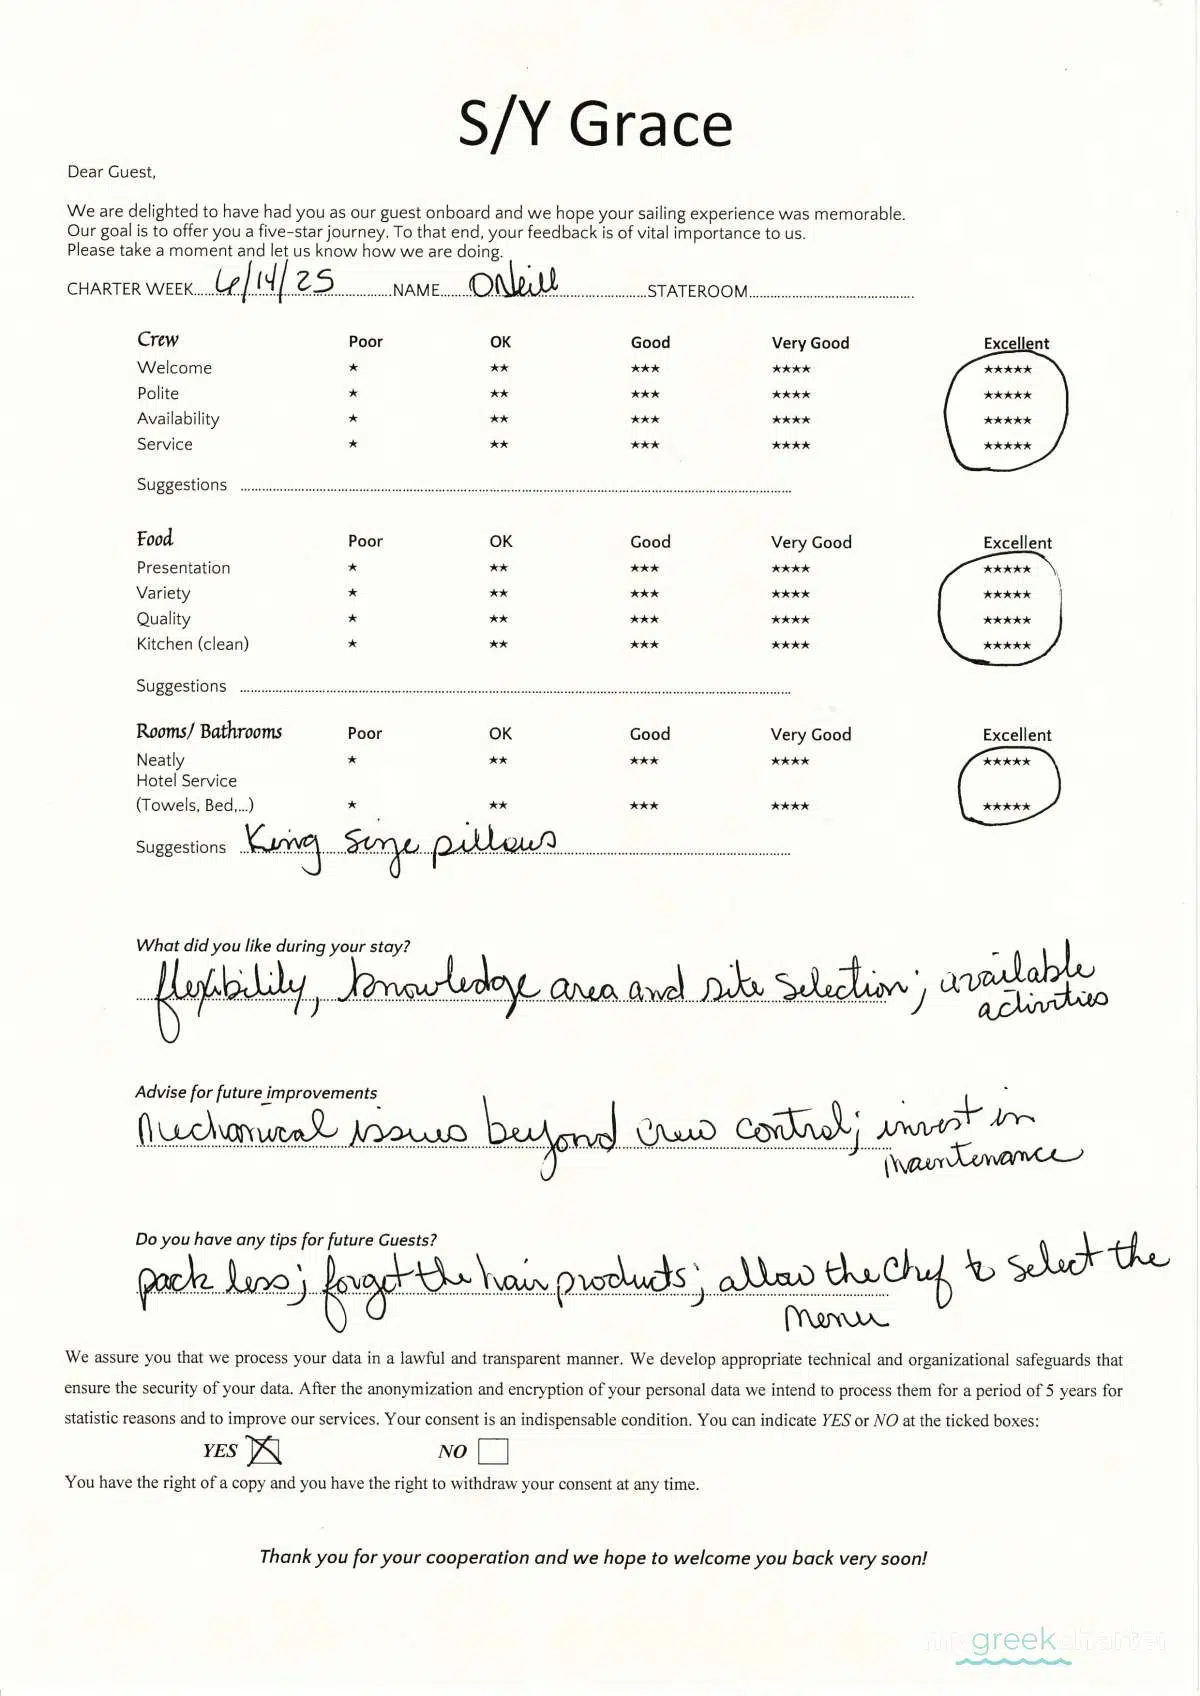 S/Y Grace
Dear Guest,
We are delighted to have had you as our guest onboard and we hope your sailing experience was memorable.
Our goal is to offer you a five-star journey. To that end, your feedback is of vital importance to us.
Please take a moment and let us know how we are doing.
CHARTER WEEK 6/14/25 NAME ONeill STATEROOM
Crew Poor OK Good Very Good Excellent
Welcome ★ ★★ ★★★ ★★★★ ★★★★★
Polite ★ ★★ ★★★ ★★★★ ★★★★★
Availability ★ ★★ ★★★ ★★★★ ★★★★★
Service ★ ★★ ★★★ ★★★★ ★★★★★
Suggestions
Food Poor OK Good Very Good Excellent
Presentation ★ ★★ ★★★ ★★★★ ★★★★★
Variety ★ ★★ ★★★ ★★★★ ★★★★★
Quality ★ ★★ ★★★ ★★★★ ★★★★★
Kitchen (clean) ★ ★★ ★★★ ★★★★ ★★★★★
Suggestions
Rooms/ Bathrooms Poor OK Good Very Good Excellent
Neatly ★ ★★ ★★★ ★★★★ ★★★★★
Hotel Service
(Towels, Bed,...) ★ ★★ ★★★ ★★★★ ★★★★★
Suggestions King size pillows
What did you like during your stay?
flexibility, knowledge area and site selection; available
activities
Advise for future improvements
Mechanical issues beyond crew control; invest in
maintenance
Do you have any tips for future Guests?
pack less; forget the hair products; allow the chef to select the
menu
We assure you that we process your data in a lawful and transparent manner. We develop appropriate technical and organizational safeguards that
ensure the security of your data. After the anonymization and encryption of your personal data we intend to process them for a period of 5 years for
statistic reasons and to improve our services. Your consent is an indispensable condition. You can indicate YES or NO at the ticked boxes:
YES NO
You have the right of a copy and you have the right to withdraw your consent at any time.
Thank you for your cooperation and we hope to welcome you back very soon!
mygreekcharter